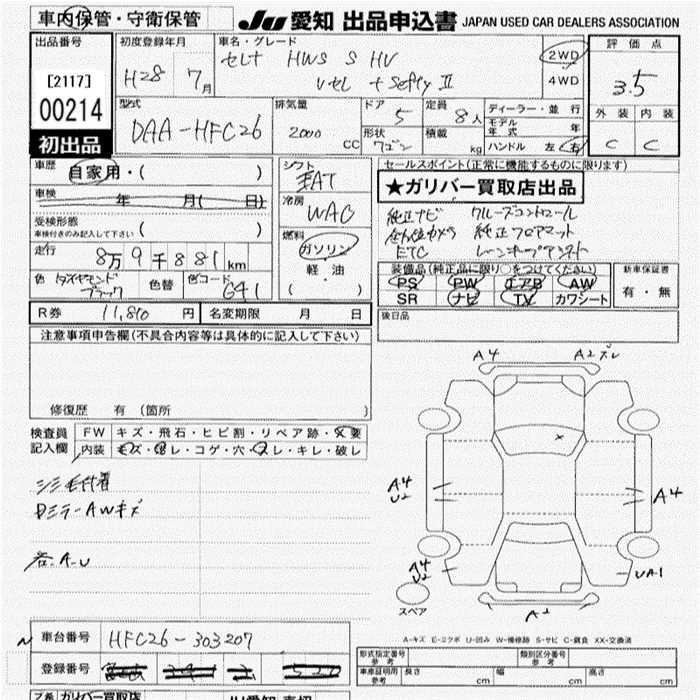 車内保管・守衛保管
JU 愛知 出品申込書 JAPAN USED CAR DEALERS ASSOCIATION
出品番号
[2117]
00214
初出品
初度登録年月
H28 7月
車名・グレード
セレナ HWS S HV
Vセレ +Safty II
2WD
4WD
評価点
3.5
外装 内装
C C
型式
DAA-HFC26
排気量
2000 CC
ドア
5
形状
ワゴン
定員
8人
積載
kg
ディーラー・並行
モデル年式 年
ハンドル 左・右
車歴
自家用・( )
車検
年 月( 日)
受検形態
車検付きのみ記入して下さい ( )
走行
8万9千881km
色 ダイヤモンドブラック
色替
色コード G41
シフト
FAT
冷房
WAC
燃料
ガソリン
軽・油
( )
セールスポイント(正常に機能するものに限ります)
★ガリバー買取店出品
純正ナビ クルーズコントロール
全方位カメラ 純正フロアマット
ETC レーンキープアシスト
装備品(純正品に限り○をつけてください)
PS PW エアB AW
SR ナビ TV カワシート
新車保証書
有・無
後日品
R券 11,810 円
名変期限 月 日
注意事項申告欄(不具合内容等は具体的に記入して下さい)
修復歴 有 (箇所 )
検査員記入欄
FW キズ・飛石・ヒビ割・リペア跡・×要
内装 キズ・汚レ・コゲ・穴・スレ・キレ・破レ
シミ毛付着
Dミラー AWキズ
各A.U
A4
A2 ズレ
×
A4
U2
A4
A4
U2
UA1
A2
スペア
A-キズ E-エクボ U-凹み W-補修跡 S-サビ C-腐食 XX-交換済
車台番号 HFC26-303207
登録番号
形式指定番号 参考
類別区分番号 参考
車庫証明用 参考 長さ cm 幅 cm 高さ cm
ガリバー買取店
JU愛知